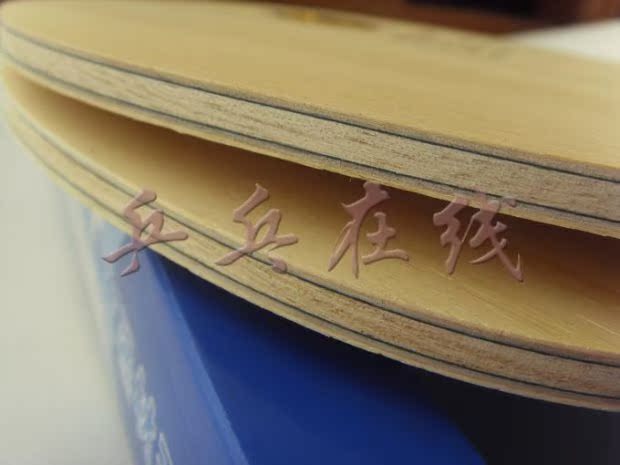 乒乓在线